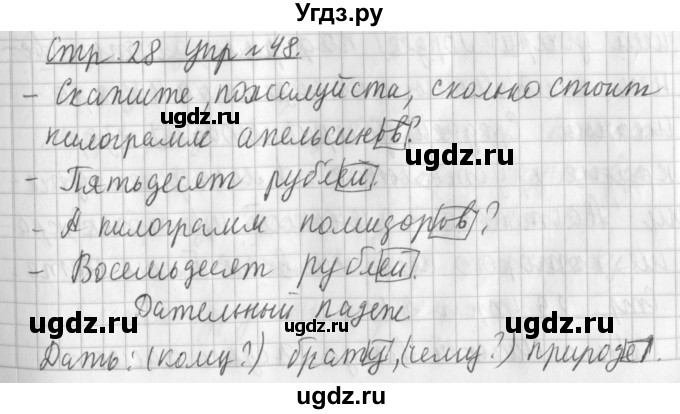 Угдз.ру
Стр. 28 упр № 48.
- Скажите, пожалуйста, сколько стоит
килограмм апельсинов?
ugdz.ru
ugdz.ru
- Пятьдесят рублей.
- А килограмм помидоров?
ugdz.ru
- Восемьдесят рублей.
Дательный падеж
ugdz.ru
ugdz.ru
ugdz.ru
Дать: (кому?) брату, (чему?) природе.
ugdz.ru
Угдз.ру